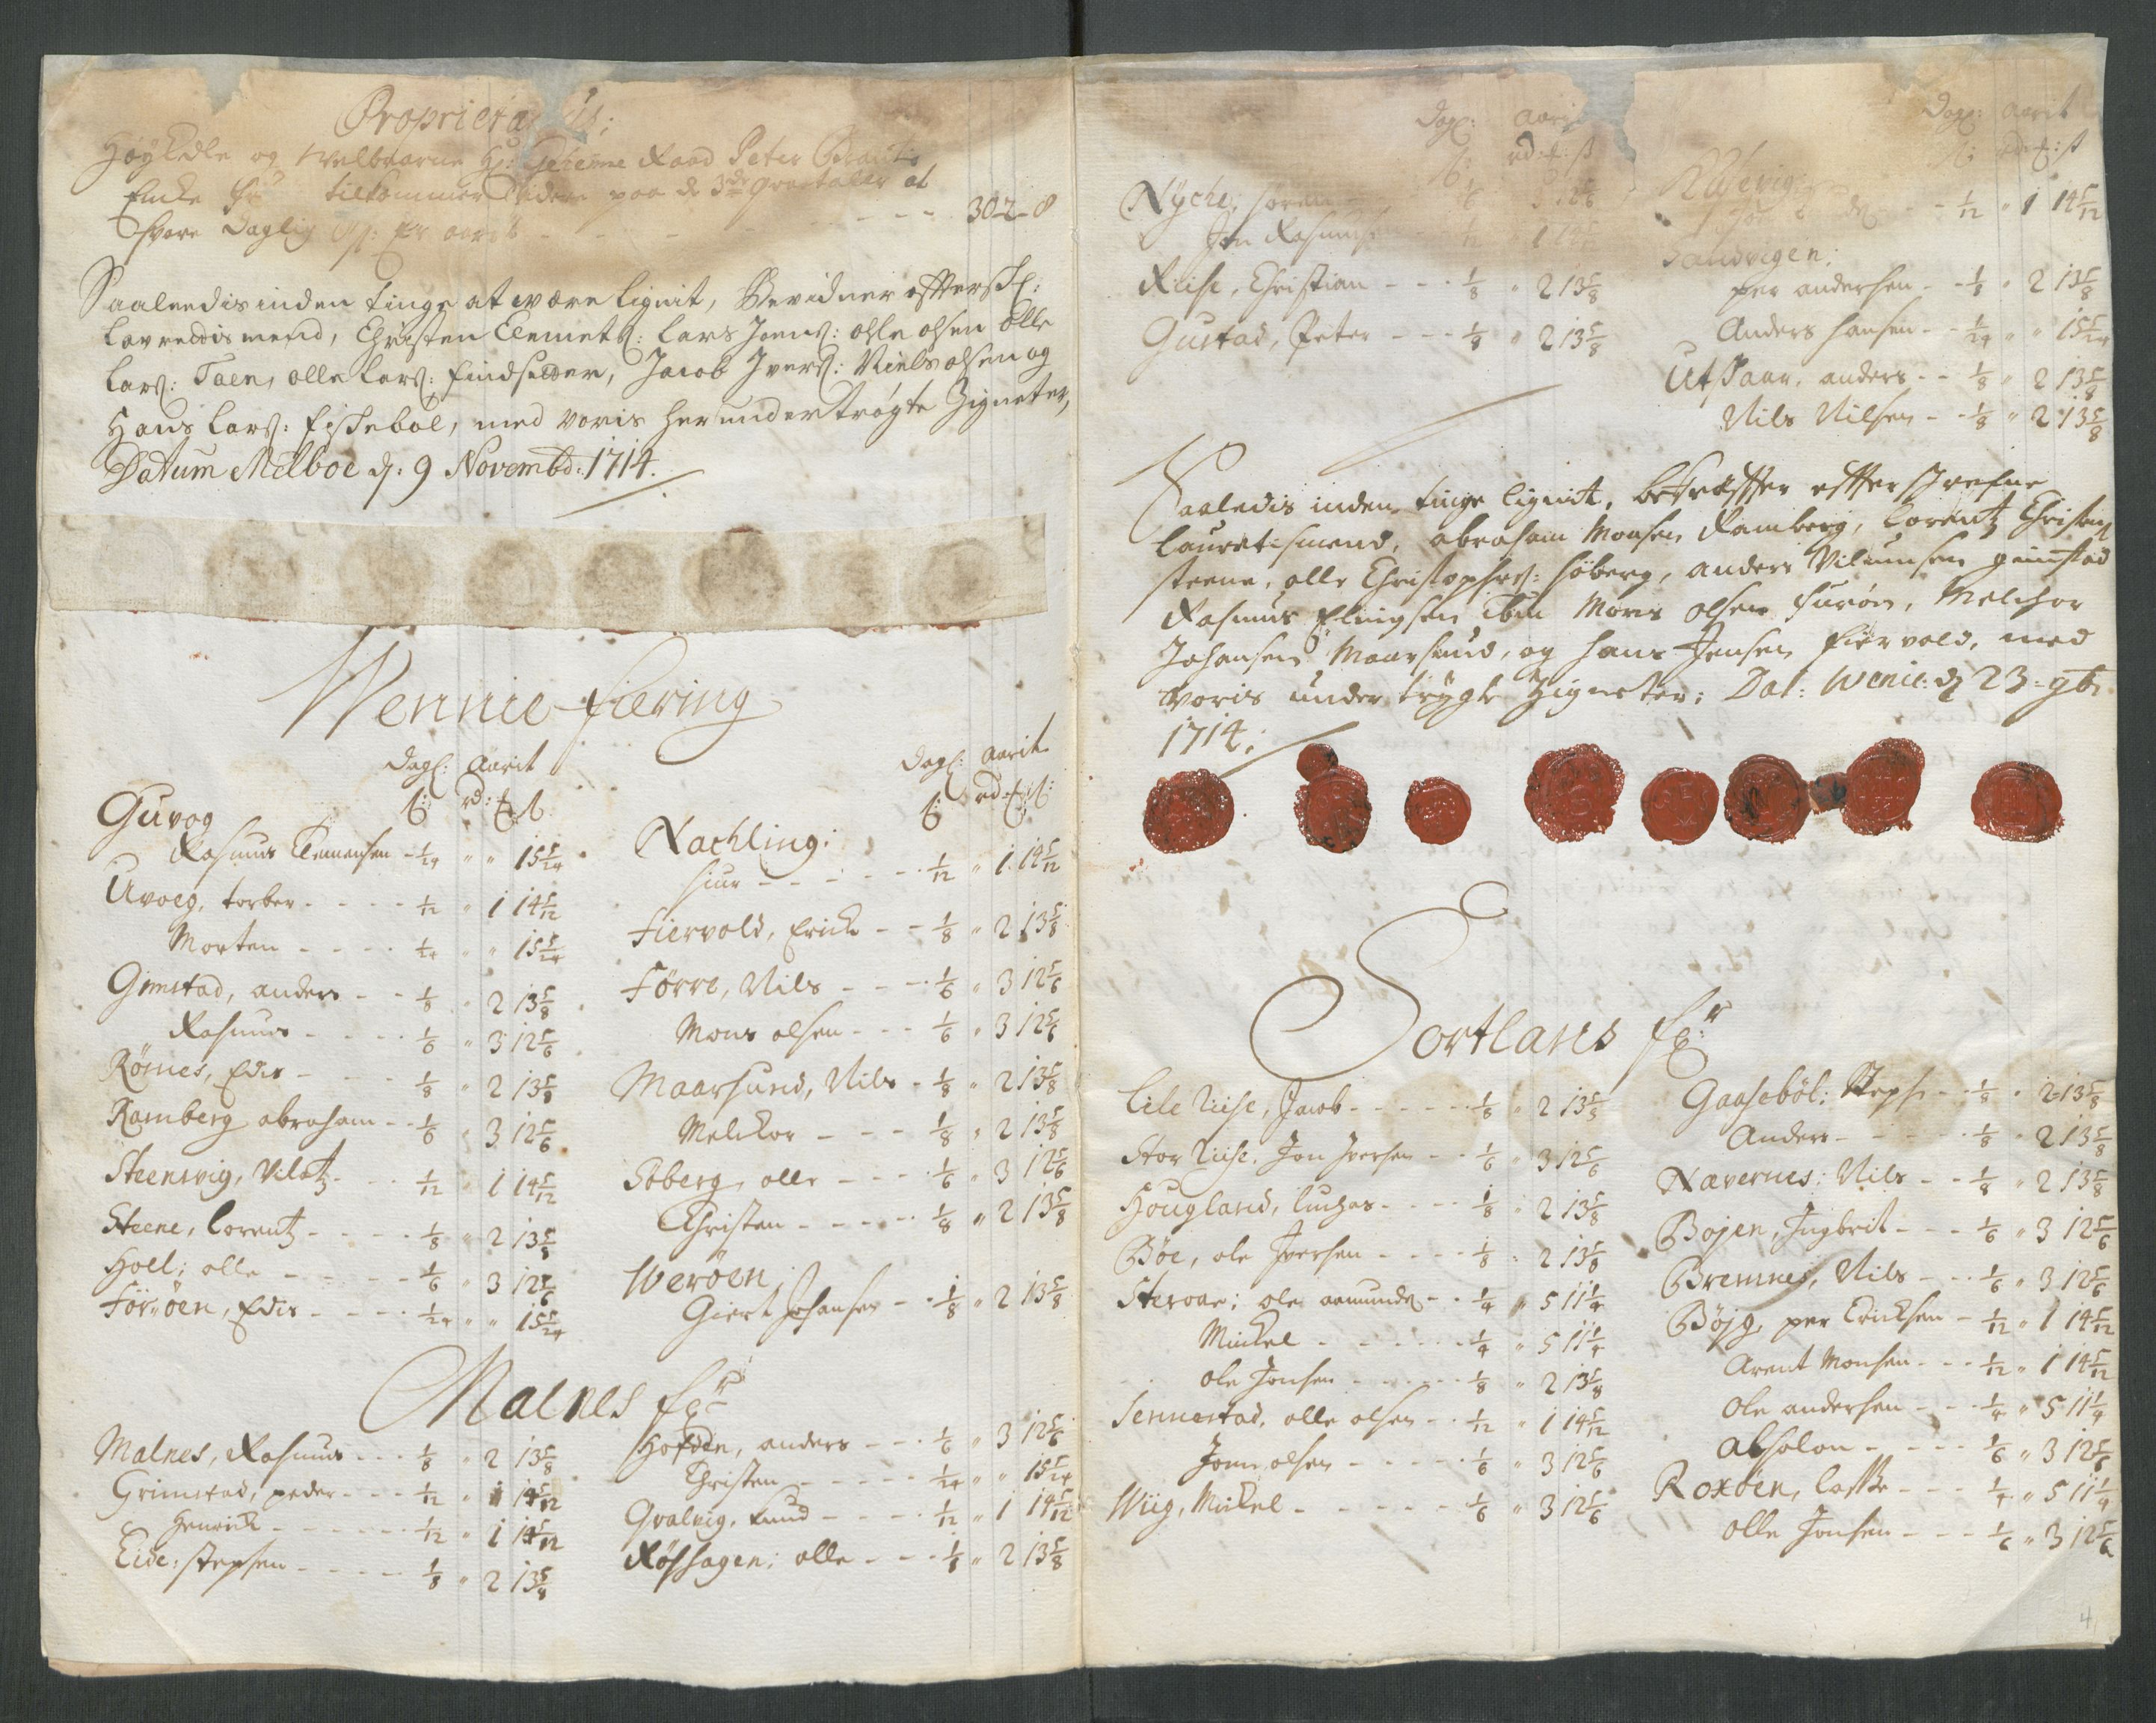 Høyædle og Welbaarne Hr: Geheime Raad Peter
Encke tilkommer videre paa de 3de qvartaler at
svare Daglig 302 - 8
Saaleedis inden tinge at være lignit, Bevidner effterskr:
Lavrettismend, Christen Clemets: Lars Jens: olle olsen olle
Lars: Taen, olle Lars: Jacob Ivers: Niels olsen og
Hans Lars: Fiskebøl, med voris herundertrøgte Zigneter,
Datum Melboe d: 9 Novembd: 1714.
Wennie-fiering
Dagl: Aarit
ß: rd: ₰ ß
Guvog
Rasmus Clemensen - 1/24 " " 15 5/24
Uvoeg, torber - - - - 1/12 " 1 14 5/12
Morten - - - - 1/24 " " 15 5/24
Gimstad, anders - - 1/8 " 2 13 5/8
Rasmus - - - - 1/6 " 3 12 5/6
Römes, Edis - - - - 1/8 " 2 13 5/8
Ramberg abraham - - 1/6 " 3 12 5/6
Steensvig, - - - 1/12 " 1 14 5/12
Steene, Lorentz - - - - 1/8 " 2 13 5/8
Holl; olle - - - - - 1/6 " 3 12 5/6
För=öen, Edis - - - - 1/24 " " 15 5/24
Dagl: aarit
ß: rd ₰ ß:
Nachling:
siur - - - - - - 1/12 " 1 14 5/12
Fiervold, Erich - - 1/8 " 2 13 5/8
Förre, Nils - - - - 1/6 " 3 12 5/6
Mons olsen - - - 1/6 " 3 12 5/6
Maarsund, Nils - 1/8 " 2 13 5/8
Melchor - - - 1/8 " 2 13 5/8
Söberg, olle - - - - 1/6 " 3 12 5/6
Christen - - - - - 1/8 " 2 13 5/8
Weröen
Giert Johansen - - 1/8 " 2 13 5/8
Malnes
Malnes, Rasmus - - - 1/8 " 2 13 5/8
Grimstad, peder - - - 1/12 " 1 14 5/12
Henrich - - - - - - 1/12 " 1 14 5/12
Eide: stephen - - - - - 1/8 " 2 13 5/8
Hofden, anders - - - 1/6 " 3 12 5/6
Christen - - - - - 1/24 " " 15 5/24
Qvalvig, knud - - - - 1/12 " 1 14 5/12
Røshagen; olle - - - 1/8 " 2 13 5/8
Dagl: aarit
rd: ₰: ß
Nyche, sören
Jon Rasmusen
Reise, Christian - - - 1/8 " 2 13 5/8
Gustad, Peter - - - 1/8 " 2 13 5/8
Dagl: aarit
rd: ₰: ß
- - 1/12 " 1 14 5/12
Sandvigen:
per andersen - - 1/8 " 2 13 5/8
Anders hansen - - 1/24 " " 15 5/24
Utskaar, anders - - 1/8 " 2 13 5/8
Nils Nilsen - - 1/8 " 2 13 5/8
Saaledis inden tinge lignit, bekræffter effterskrefne
Laurettismend, abraham Monsen Ramberg, Lorentz Christens
steene, olle Christophers: Söberg, anders Gimstad
Rasmus ibm Mons olsen Melchor
Johansen Maarsund, og hans Jensen Fiervold, med
voris under trygte Zigneter: Dat: Wenie: d 23 - 9br
1714.
Sortlans
Lile Riise, Jacob - - - - - 1/8 " 2 13 5/8
Stor Riise, Jon Jversen - - 1/6 " 3 12 5/6
Hougland, Luchas - - - - 1/8 " 2 13 5/8
Böe, ole Jversen - - - - 1/8 " 2 13 5/8
ole aamunds - - 1/4 " 5 11 1/4
Mickel - - - - - - 1/4 " 5 11 1/4
ole Jonsen - - - - - 1/8 " 2 13 5/8
Sennestad, olle olsen - - 1/12 " 1 14 5/12
Jonn olsen - - - - - 1/6 " 3 12 5/6
Wiig, Mickel - - - - - - 1/6 " 3 12 5/6
Gaaseböl: Steph - - 1/8 " 2 13 5/8
Anders - - - - - 1/8 " 2 13 5/8
Nævernes: Nils - - 1/8 " 2 13 5/8
Bojen, Ingbrit - - - 1/6 " 3 12 5/6
Bremnes, Nils - - - 1/6 " 3 12 5/6
Böjg, per Ericksen - 1/12 " 1 14 5/12
Arent Monsen - - - 1/12 " 1 14 5/12
Ole andersen - - - 1/4 " 5 11 1/4
Absolon - - - - 1/6 " 3 12 5/6
Roxöen, Lasse - - - 1/4 " 5 11 1/4
olle Jonsen - - - 1/6 " 3 12 5/6
4